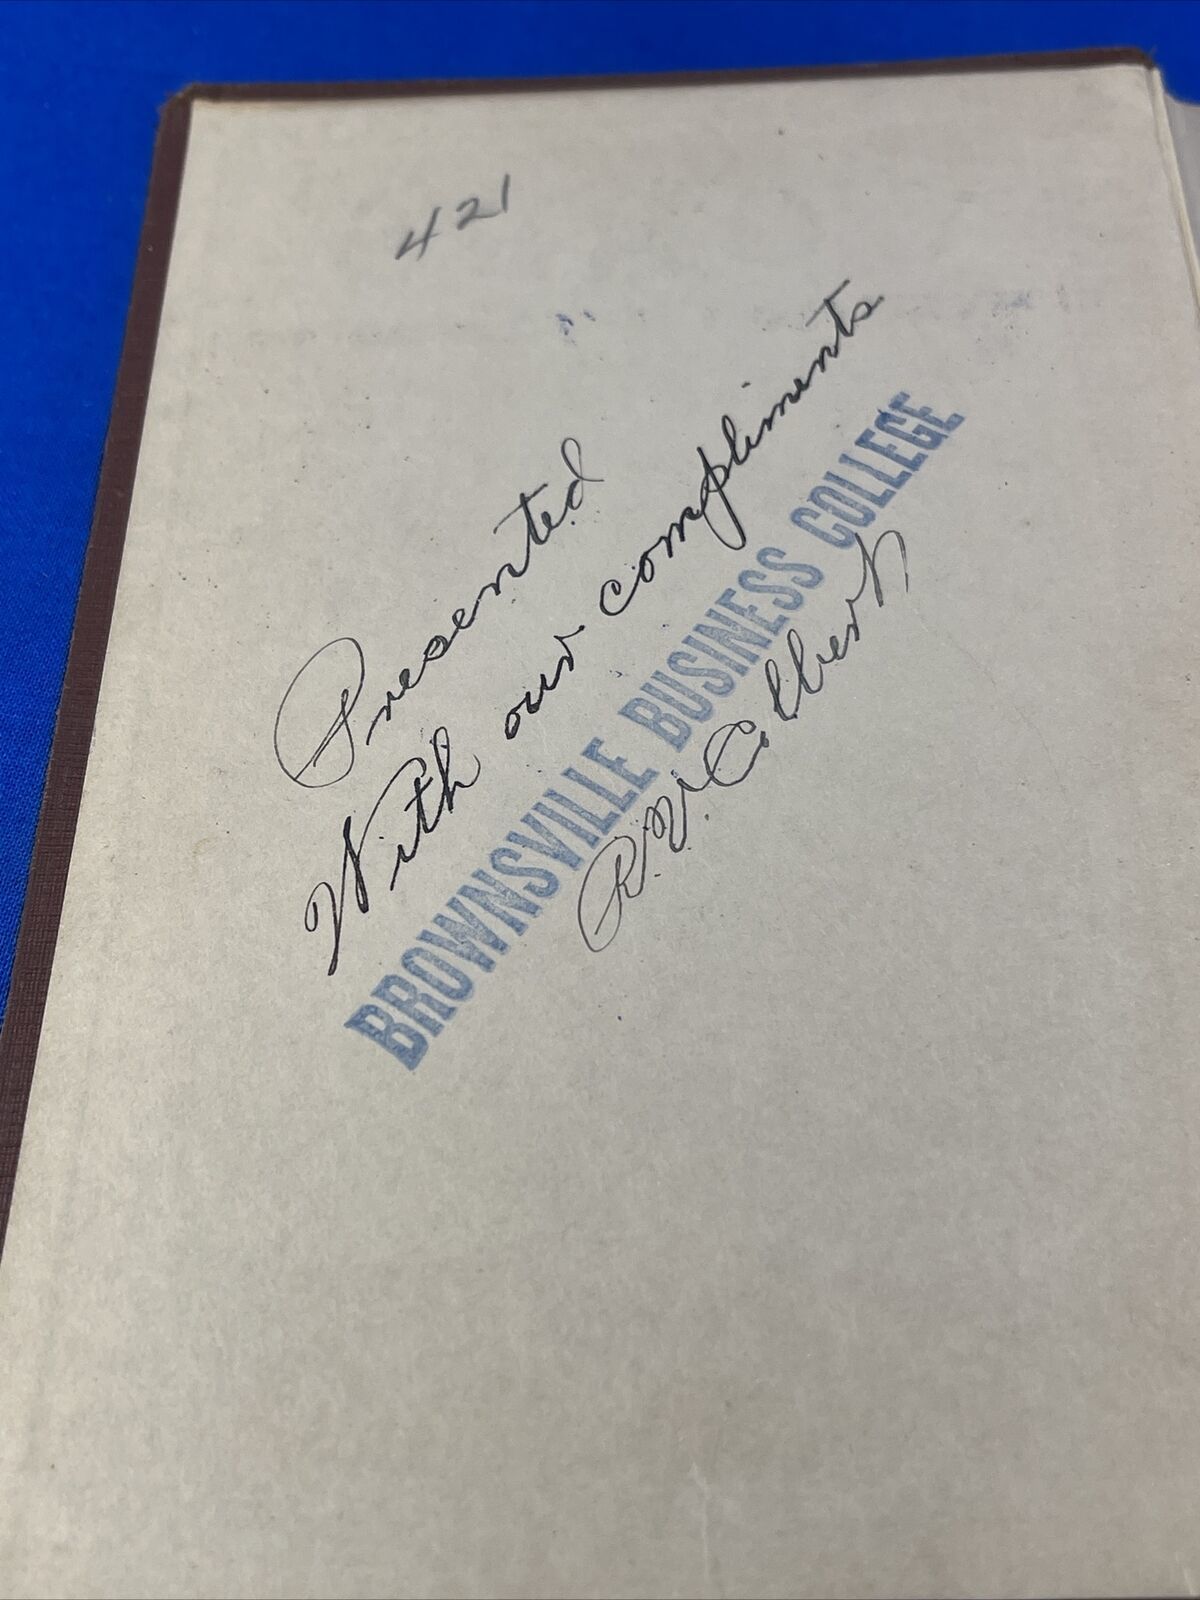 421
Presented
With our compliments
BROWNSVILLE BUSINESS COLLEGE
R.V. Colbert